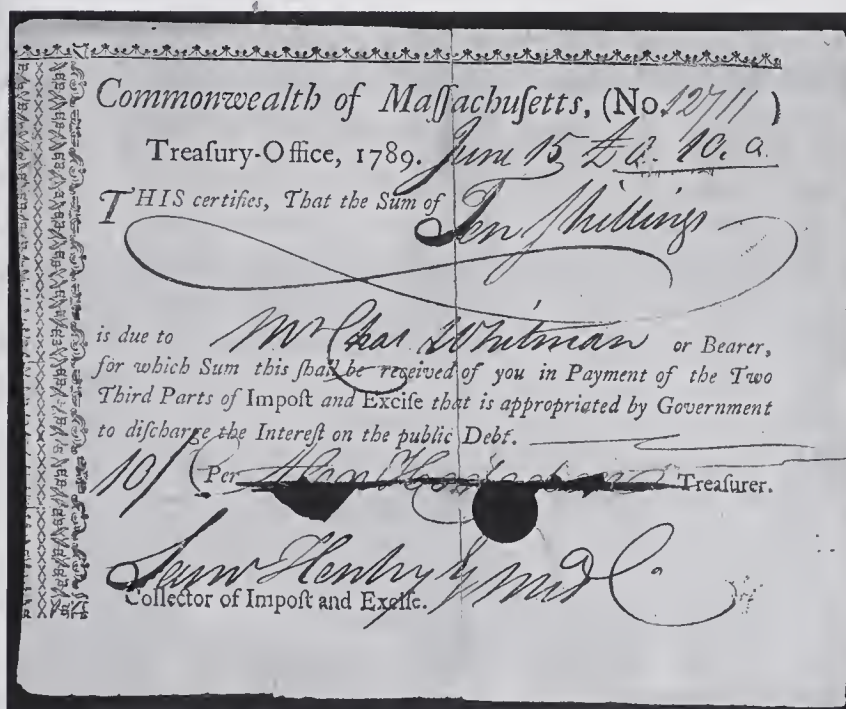 Commonwealth of Maſſachuſetts, (No. 12711)
Treaſury-Office, 1789. June 15 £ 0. 10. 0
THIS certifies, That the Sum of Ten ſhillings
is due to Mr Chas Whitman or Bearer,
for which Sum this ſhall be received of you in Payment of the Two
Third Parts of Impoſt and Exciſe that is appropriated by Government
to diſcharge the Intereſt on the public Debt.
10/ Per Treaſurer.
Henry
Collector of Impoſt and Exciſe.